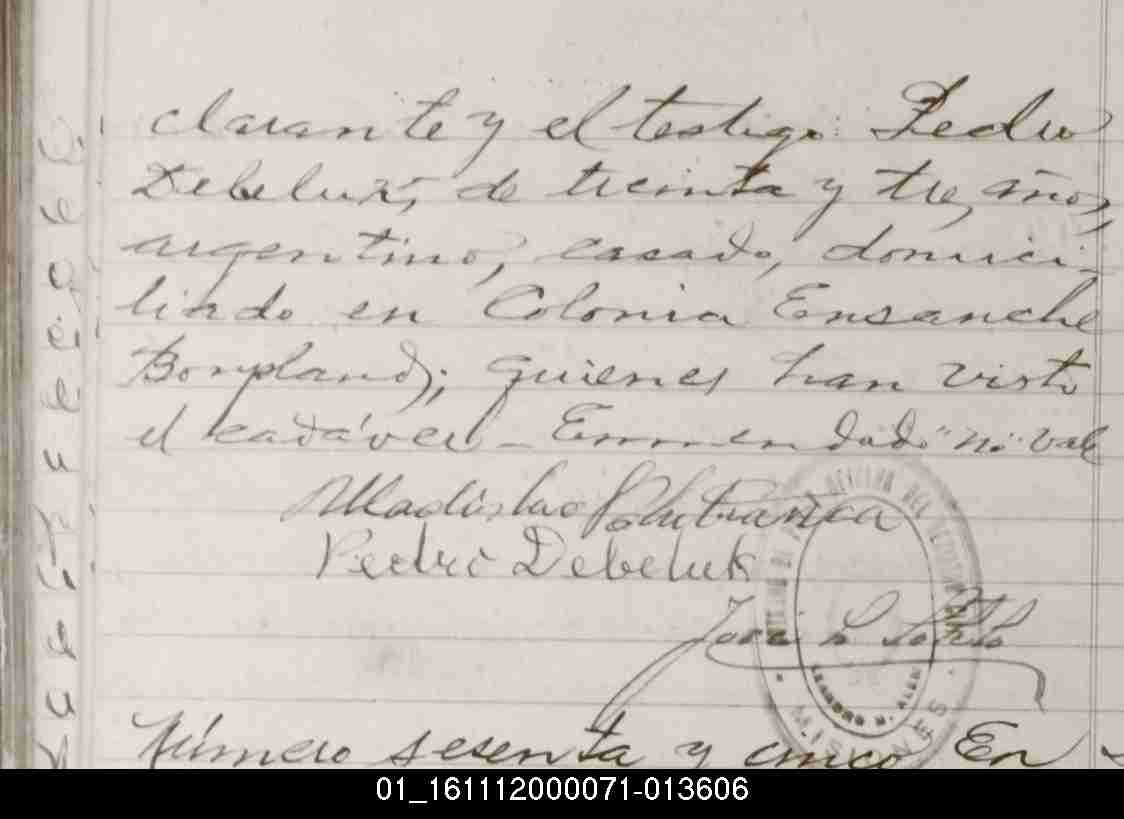 clarante y el testigo: Pedro
Debeluk, de treinta y tres años,
argentino, casado, domici-
liado en Colonia Ensanche
Bompland; quienes han visto
el cadáver_ Enmendado "ni" vale
Wladislao
Pedro Debeluk
José L
LEANDRO N. ALEM
MISIONES
Número sesenta y cinco En
01_161112000071-013606